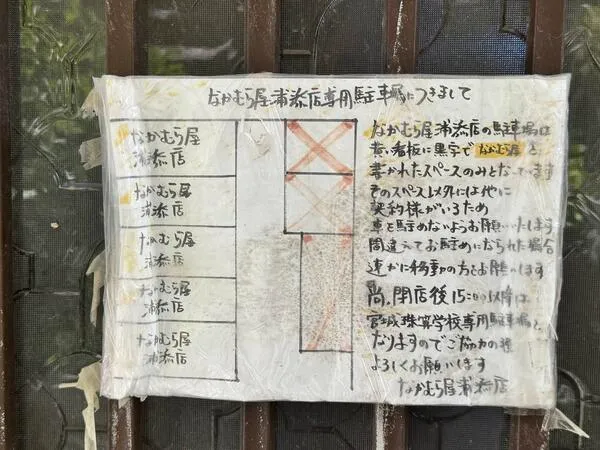 なかむら屋浦添店専用駐車場につきまして
なかむら屋
浦添店
なかむら屋
浦添店
なかむら屋
浦添店
なかむら屋
浦添店
なかむら屋
浦添店
なかむら屋浦添店の駐車場は
黄い看板に黒字でなかむら屋と
書かれたスペースのみとなっています
そのスペース以外には他に
契約様がいるため
車を駐めないようお願いいたします
間違えてお駐めになられた場合
速かに移動の方をお願いします
尚、閉店後15:00以降は
宮城珠算学校専用駐車場と
なりますのでご協力の程
よろしくお願いします
なかむら屋浦添店